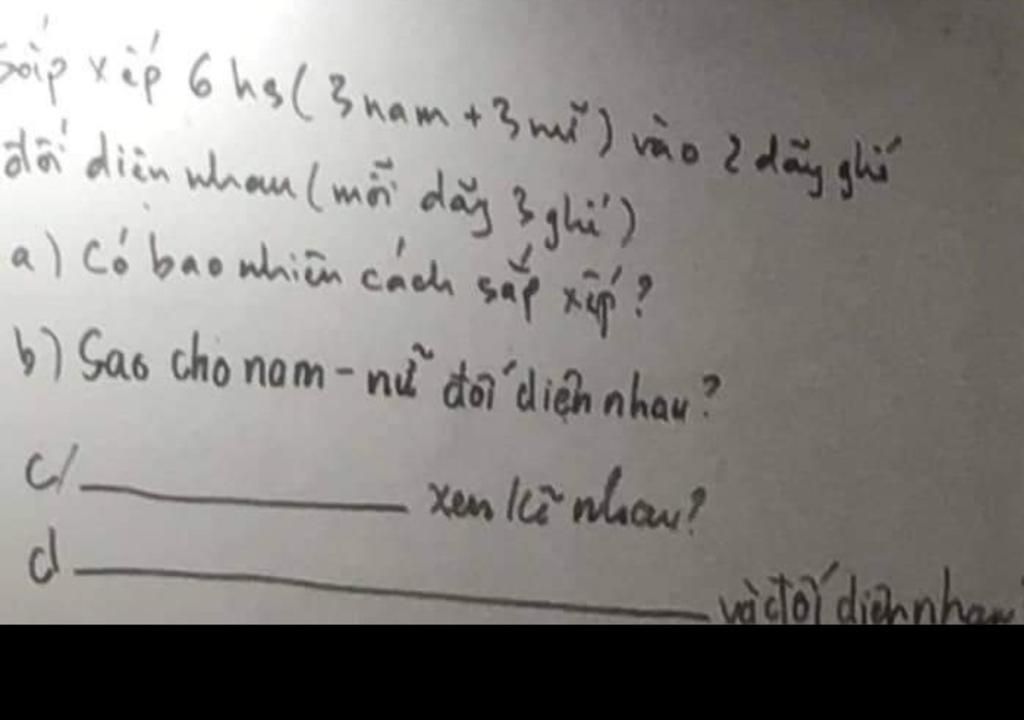 Sắp xếp 6 hs (3 nam + 3 nữ) vào 2 dãy ghế
đối diện nhau (mỗi dãy 3 ghế)
a) Có bao nhiên cách sắp xếp?
b) Sao cho nam - nữ đối diện nhau?
c/ ________ xen kẽ nhau?
d ________ và đối diện nhau